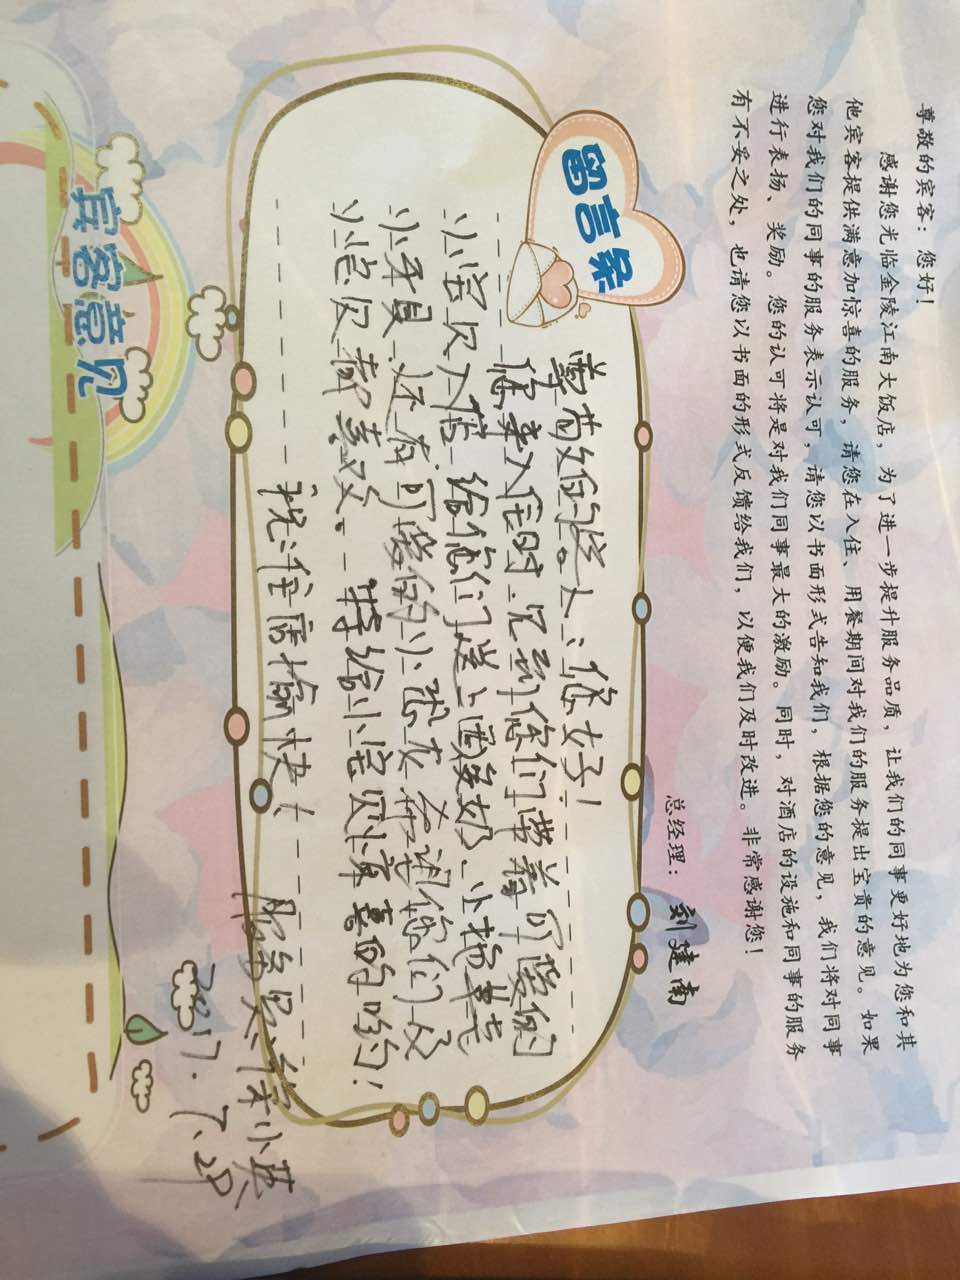 尊敬的宾客：您好！
感谢您光临金陵江南大饭店，为了进一步提升服务品质，让我们的同事更好地为您和其
他宾客提供满意加惊喜的服务，请您在入住、用餐期间对我们的服务提出宝贵的意见。如果
您对我们的同事的服务表示认可，请您以书面形式告知我们，根据您的意见，我们将对同事
进行表扬、奖励。您的认可将是对我们同事最大的激励。同时，对酒店的设施和同事的服务
有不妥之处，也请您以书面的形式反馈给我们，以便我们及时改进。非常感谢您！
总经理：刘建南
留言条
尊敬的 您好！
您来入住时 见到你们带着可爱的
小宝贝入店 给你们送上酸奶、小拖鞋
小牙具 还有可爱的小 希望你们及
小宝贝都喜欢。特给小宝贝 的哟！
祝住店愉快！
服务员：徐小英
2017.7.29
宾客意见